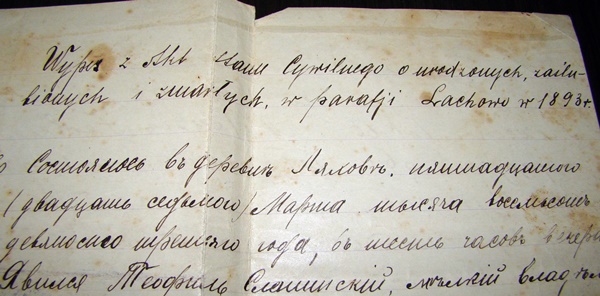 Wypis z Akt stanu Cywilnego o urodzonych, zaślu-
bionych i zmarłych, w parafji Lachowo w 1893 r.
Состоялось въ деревнѣ Ляховѣ, пятнадцатого
/двадцать седьмого/ Марта тысяча восемьсотъ
девяносто третьяго года, въ шесть часовъ вечера
Явился Теофиль Славинскій, мѣлкій владѣл